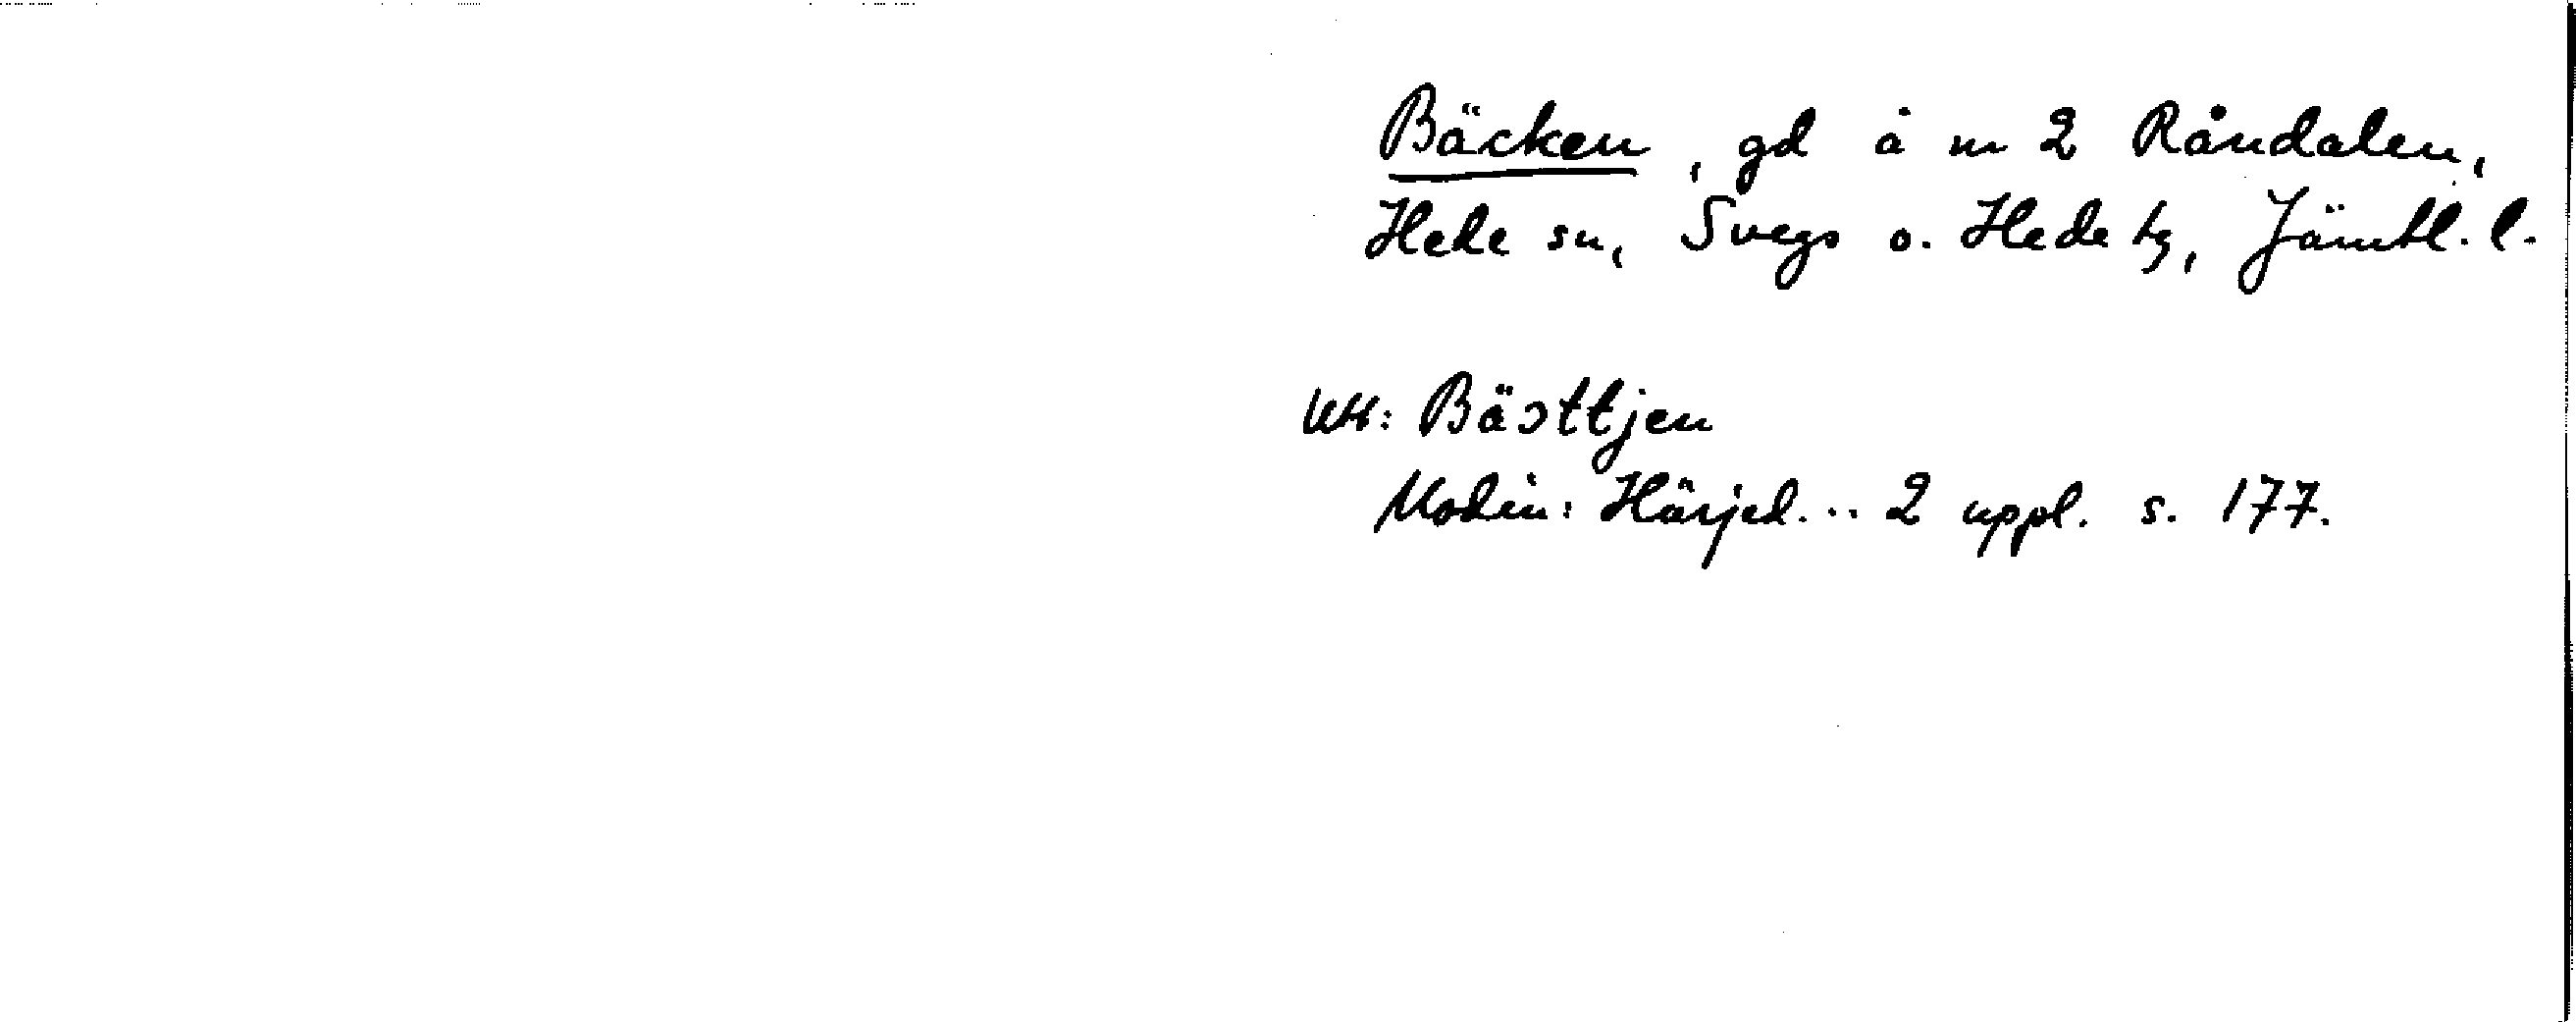 Bäcken, gd å nr 2 Råndalen,
Hede sn, Svegs o. Hede tg, Jämtl. l.
Utt: Bästtjen
Modin: Härjed... 2 uppl. s. 177.